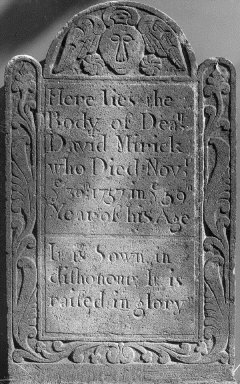 Here lies the
Body of Deaⁿ.
David Mirick
who Died Novʳ.
yᵉ 30ᵗʰ. 1757. in yᵉ 59
Year of his Age
It is Sown in
dishonour It is
raised in glory